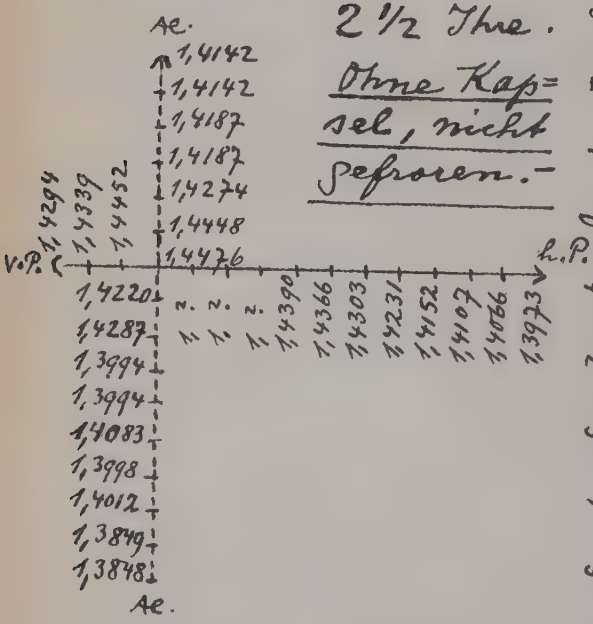 Ae.
2 1/2 Ihre.
Ohne Kap=
sel, nicht
gefroren.-
1,4142
1,4142
1,4187
1,4187
1,4274
1,4448
1,4476
1,4294
1,4339
1,4452
v.P.
h.P.
n.
1,
n.
1,
n.
1,
1,4390
1,4366
1,4303
1,4231
1,4152
1,4107
1,4066
1,3973
1,4220
1,4287
1,3994
1,3994
1,4083
1,3998
1,4012
1,3849
1,3848
Ae.